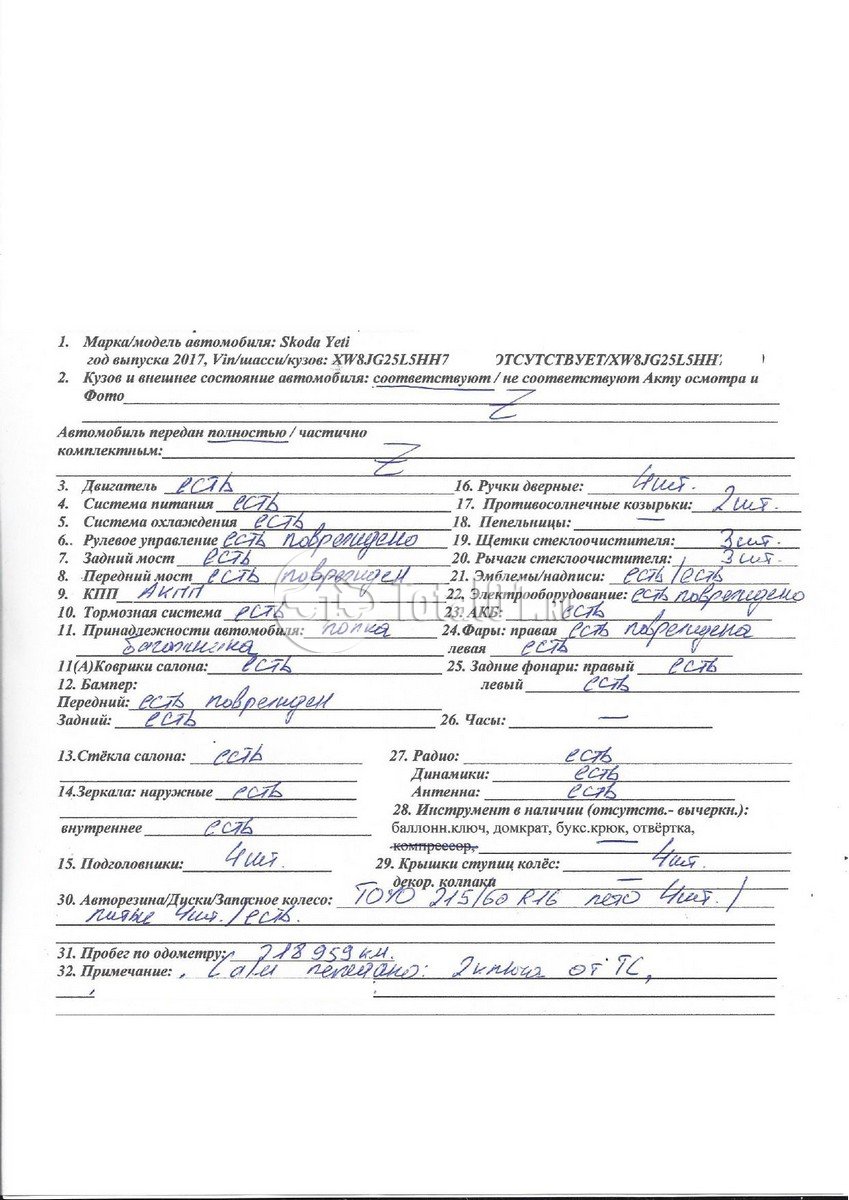 1. Марка/модель автомобиля: Skoda Yeti
год выпуска 2017, Vin/шасси/кузов: XW8JG25L5HH7 ОТСУТСТВУЕТ/XW8JG25L5HH
2. Кузов и внешнее состояние автомобиля: соответствуют / не соответствуют Акту осмотра и
Фото Z
Автомобиль передан полностью / частично
комплектным: Z
3. Двигатель есть
4. Система питания есть
5. Система охлаждения есть
6.. Рулевое управление есть повреждено
7. Задний мост есть
8. Передний мост есть поврежден
9. КПП АКПП
10. Тормозная система есть
11. Принадлежности автомобиля: полка
багажника
11(А)Коврики салона: есть
12. Бампер:
Передний: есть поврежден
Задний: есть
13.Стёкла салона: есть
14.Зеркала: наружные есть
внутреннее есть
15. Подголовники: 4шт.
16. Ручки дверные: 4шт.
17. Противосолнечные козырьки: 2шт.
18. Пепельницы: —
19. Щетки стеклоочистителя: 3шт.
20. Рычаги стеклоочистителя: 3шт.
21. Эмблемы/надписи: есть/есть
22. Электрооборудование: есть повреждено
23. АКБ: есть
24.Фары: правая есть повреждена
левая есть
25. Задние фонари: правый есть
левый есть
26. Часы: —
27. Радио: есть
Динамики: есть
Антенна: есть
28. Инструмент в наличии (отсутств.- вычеркн.):
баллонн.ключ, домкрат, букс.крюк, отвёртка,
компрессор, —
29. Крышки ступиц колёс: 4шт.
декор. колпаки —
30. Авторезина/Диски/Запасное колесо: TOYO 215/60 R16 лето 4шт./
литые 4шт./есть.
31. Пробег по одометру: 218959 км.
32. Примечание: 2 ключа от ТС,
Total01.ru